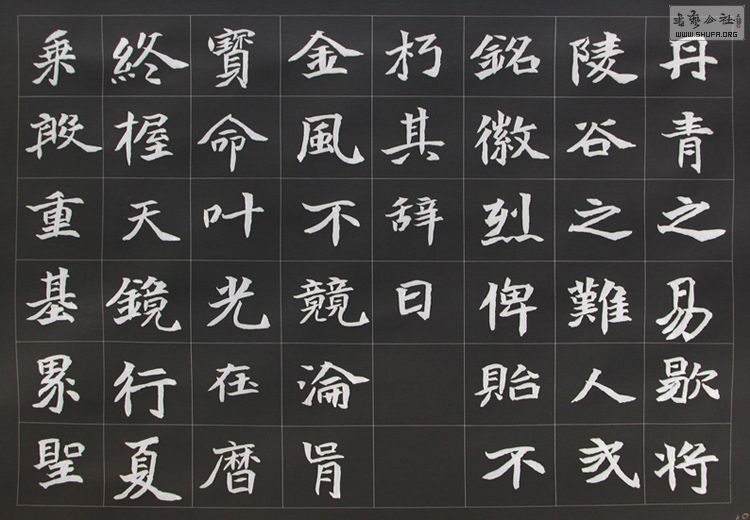 丹青之易歇将
陵谷之難久式
銘徽烈俾貽不
朽其辞曰
金風不競淪胥
寶命叶光在曆
終握天鏡行夏
乘殷重基累聖
書藝公社
WWW.SHUFA.ORG